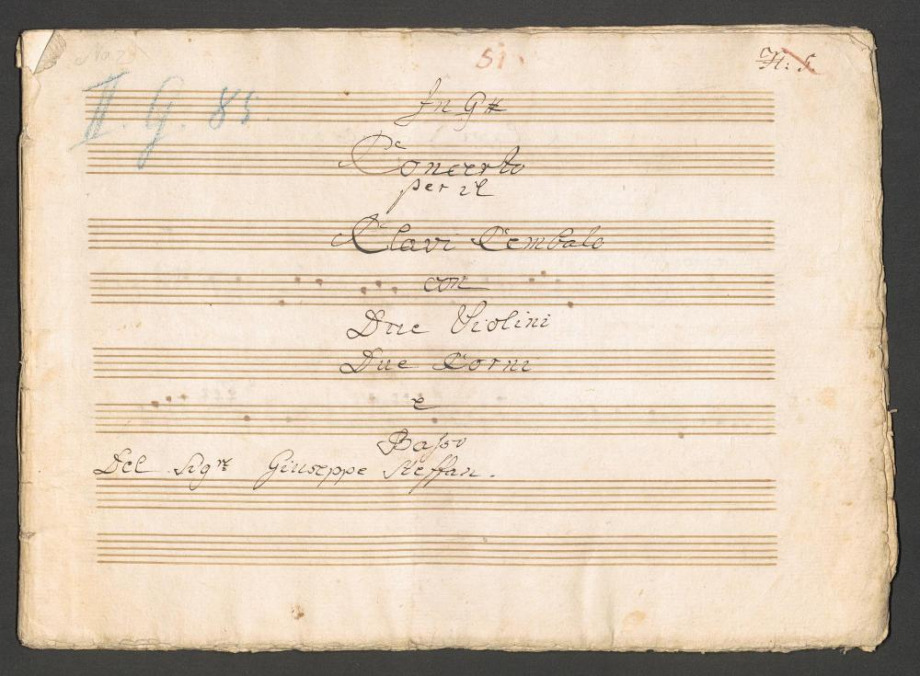 51.
II. G. 85
In G#
Concerto
per il
Clavi Cembalo
con
Due Violini
Due Corni
e
Basso
Del Sigre Giuseppe Steffan.